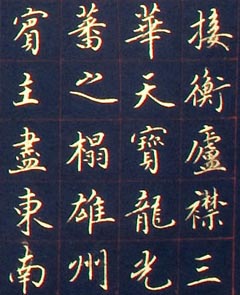 接衡廬襟三
華天寶龍光
蕃之榻雄州
賓主盡東南